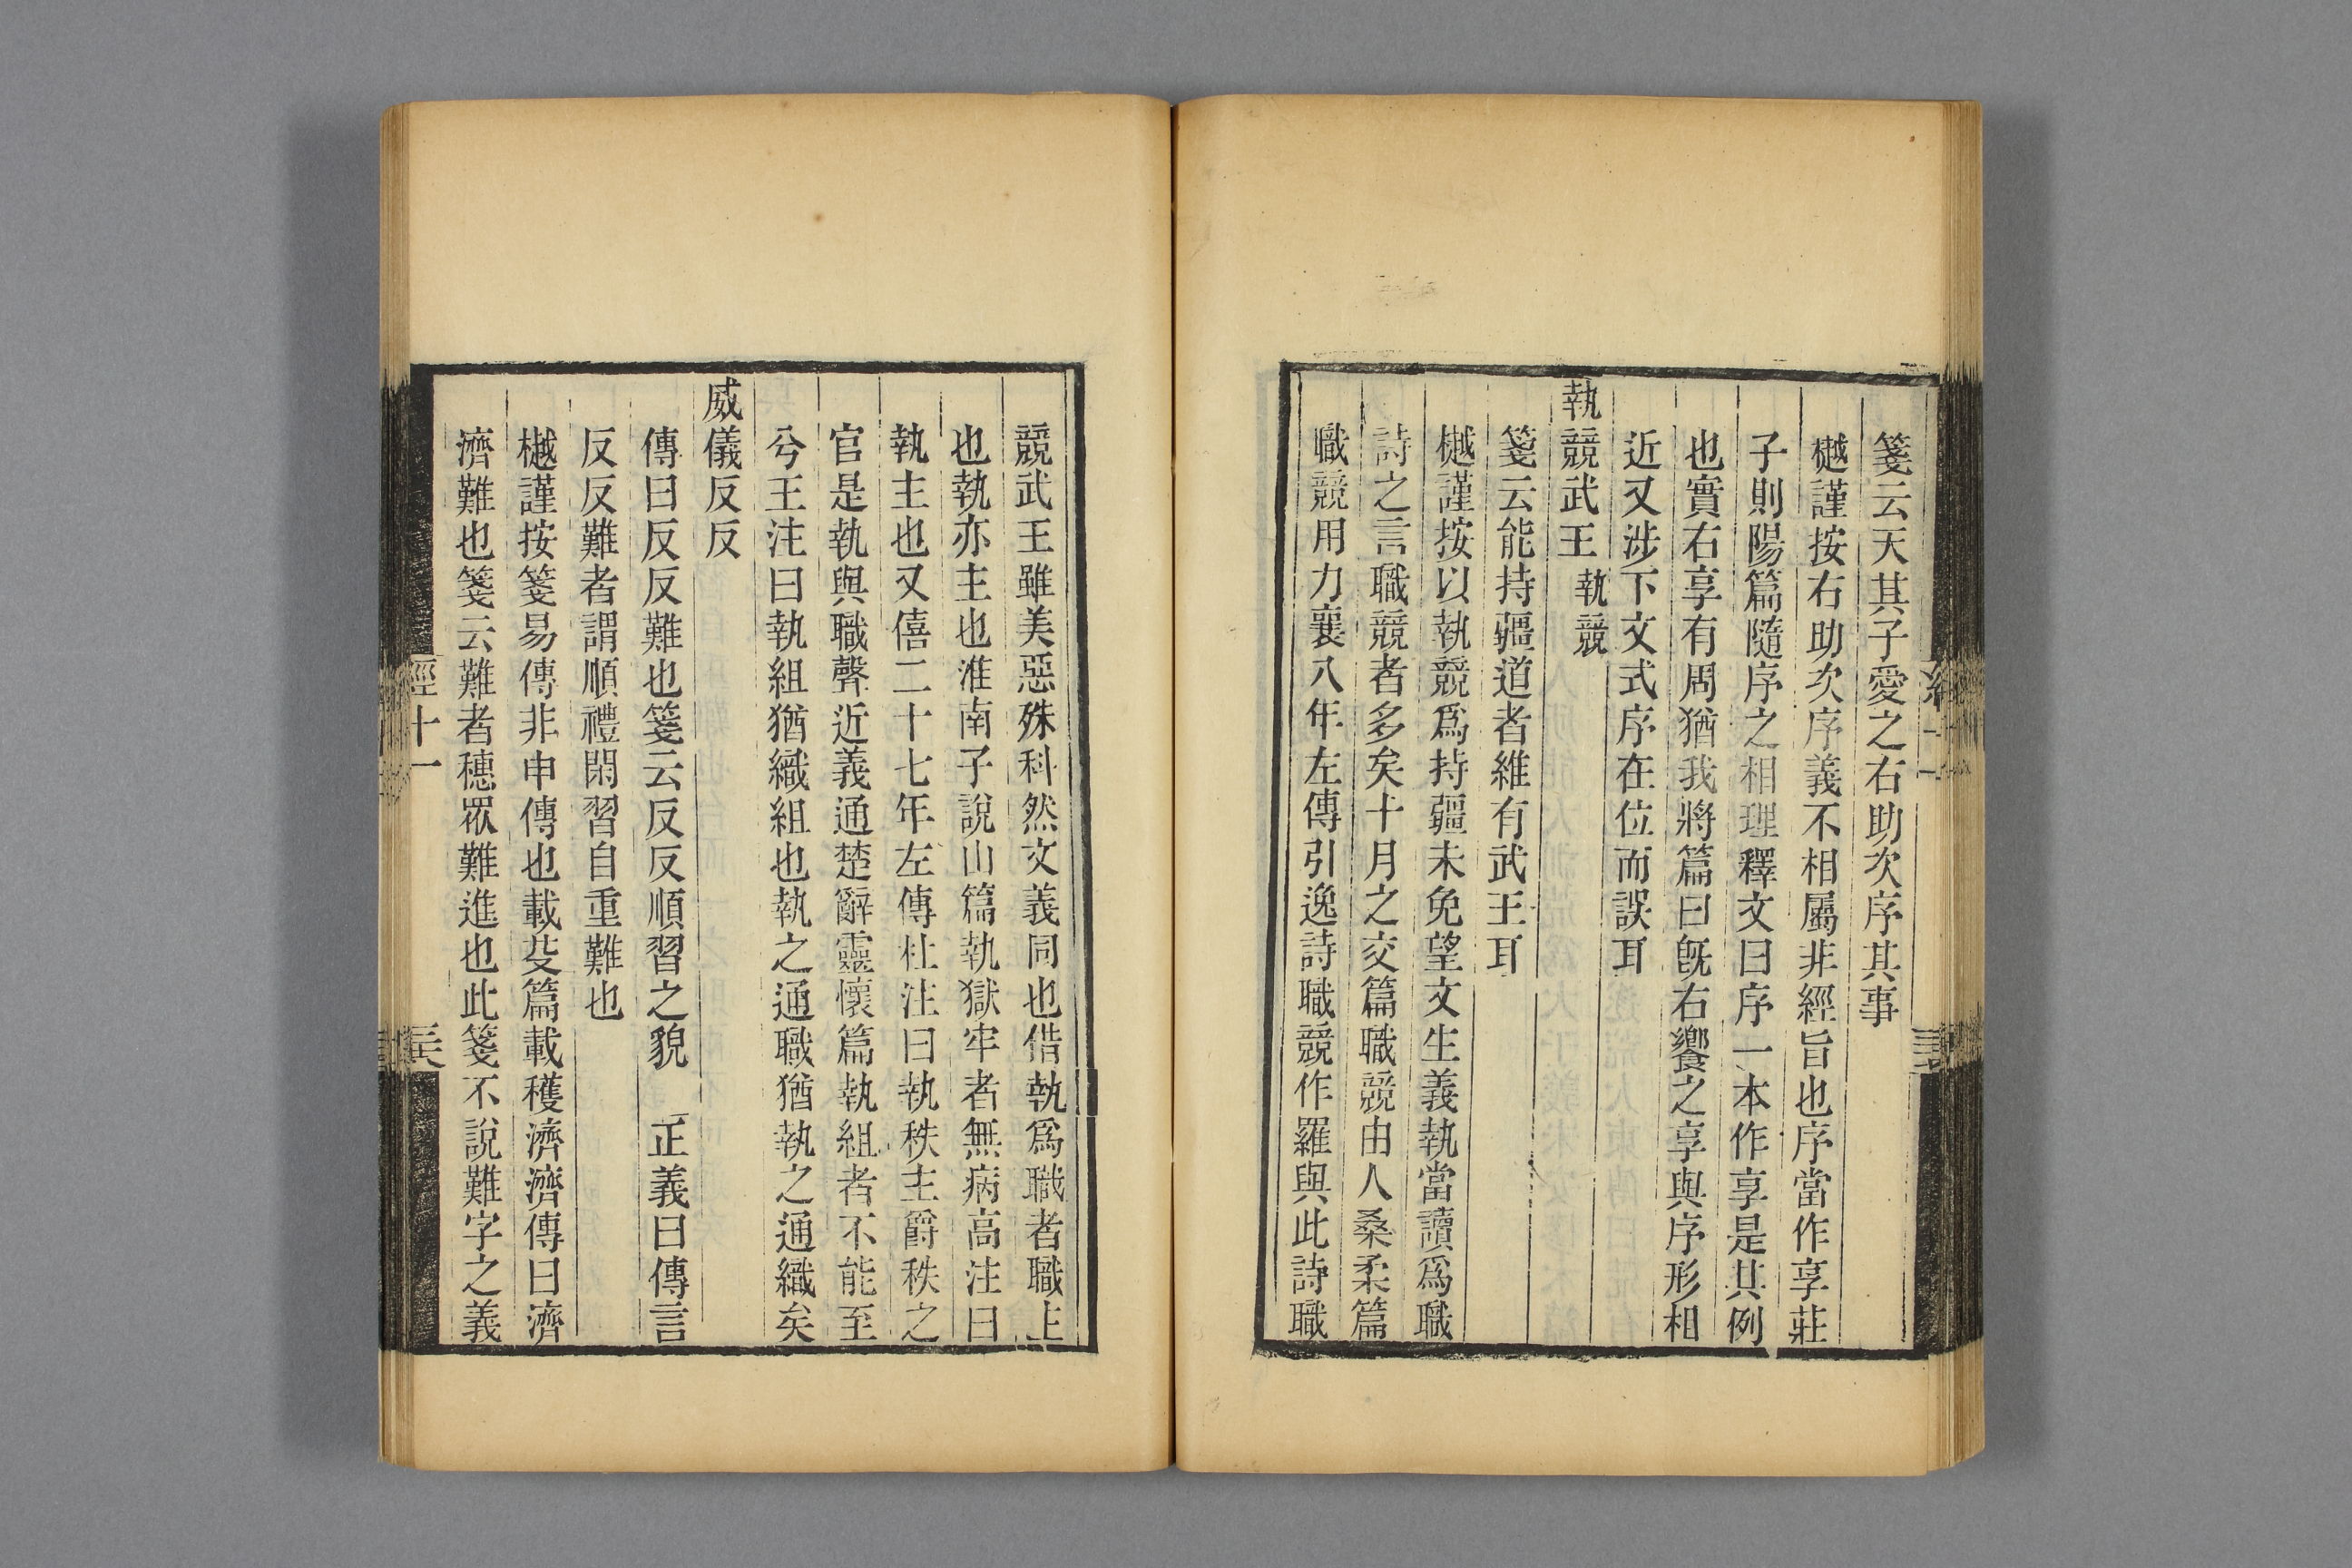 箋云天其子愛之右助次序其事
樾謹按右助次序義不相屬非經旨也序當作享莊
子則陽篇隨序之相理釋文曰序一本作享是其例
也實右享有周猶我將篇曰旣右饗之享與序形相
近又涉下文式序在位而誤耳
執競武王 執競
箋云能持疆道者維有武王耳
樾謹按以執競爲持疆未免望文生義執當讀爲職
詩之言職競者多矣十月之交篇職競由人桑柔篇
職競用力襄八年左傳引逸詩職競作羅與此詩職
競武王雖美惡殊科然文義同也借執爲職者職主
也執亦主也淮南子說山篇執獄牢者無病高注曰
執主也又僖二十七年左傳杜注曰執秩主爵秩之
官是執與職聲近義通楚辭靈懷篇執組者不能至
兮王注曰執組猶織組也執之通職猶執之通織矣
威儀反反
傳曰反反難也箋云反反順習之貌 正義曰傳言
反反難者謂順禮閑習自重難也
樾謹按箋易傳非申傳也載芟篇載穫濟濟傳曰濟
濟難也箋云難者穗眾難進也此箋不說難字之義
經十一